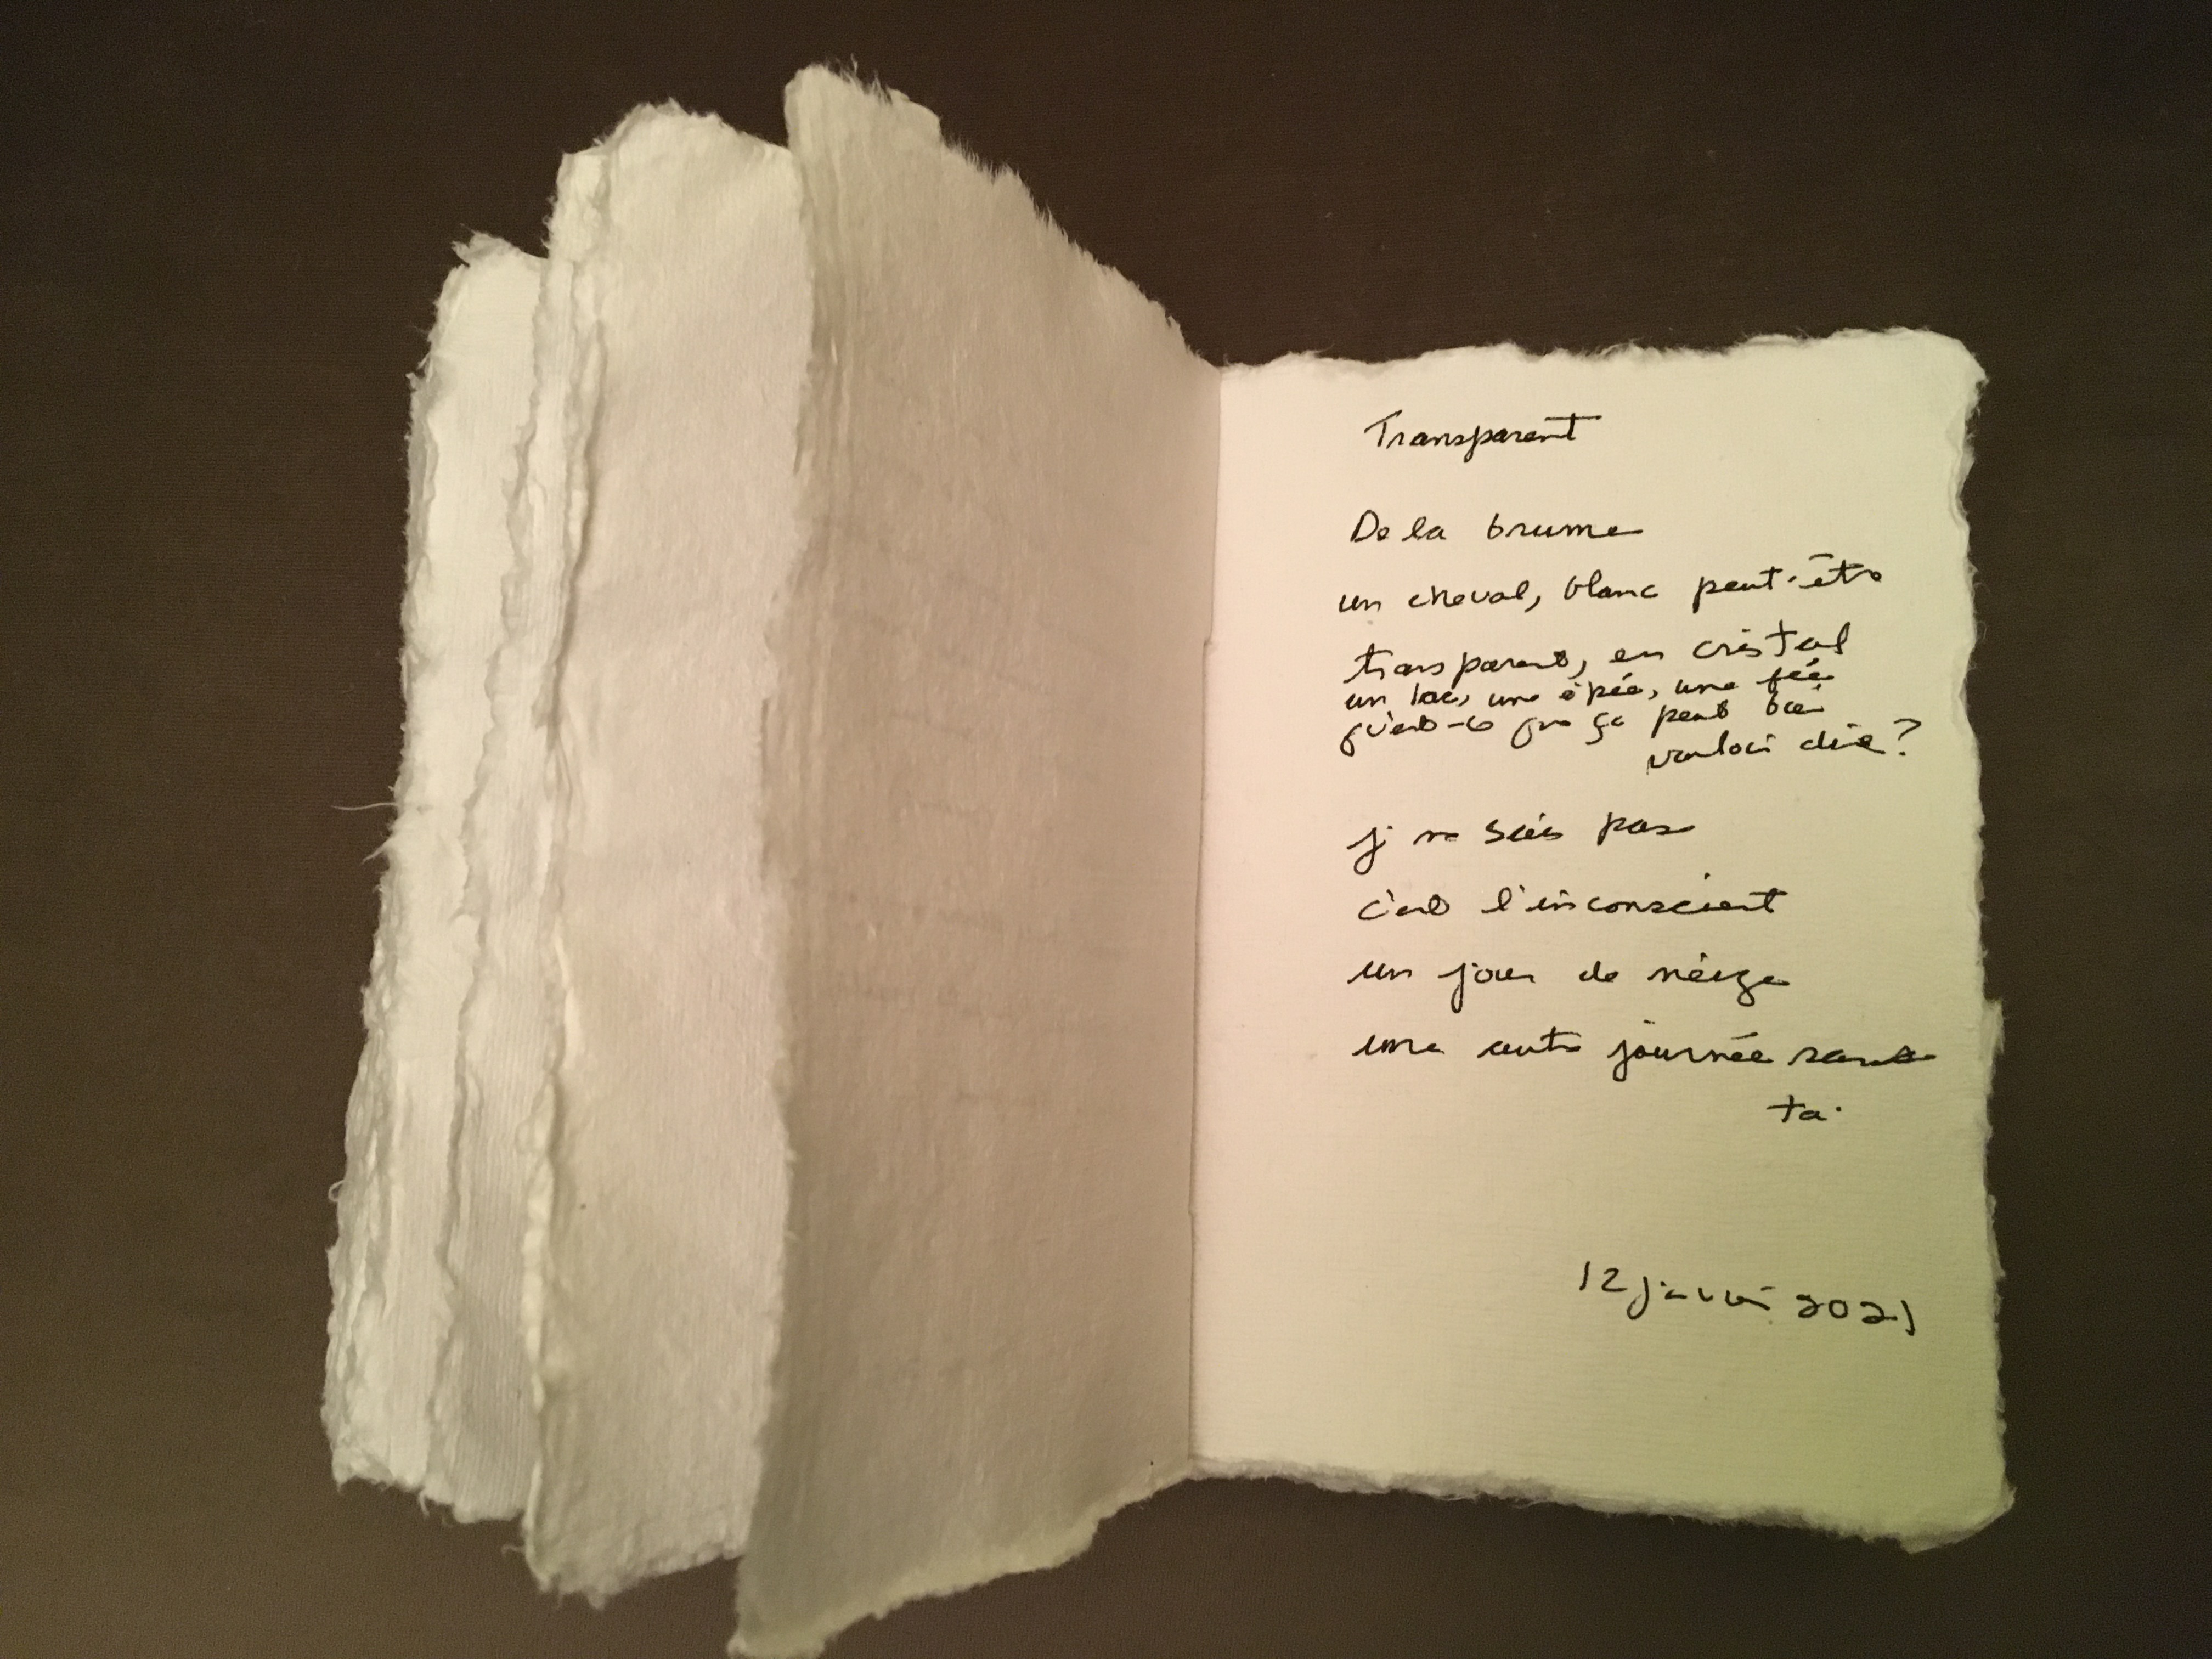 Transparent
De la brume
un cheval, blanc peut-être
transparent, en cristal
un lac, une épée, une fée
qu'est-ce que ça peut bien
vouloir dire?
je ne sais pas
c'est l'inconscient
un jour de neige
une autre journée sans
toi
12 janvier 2021